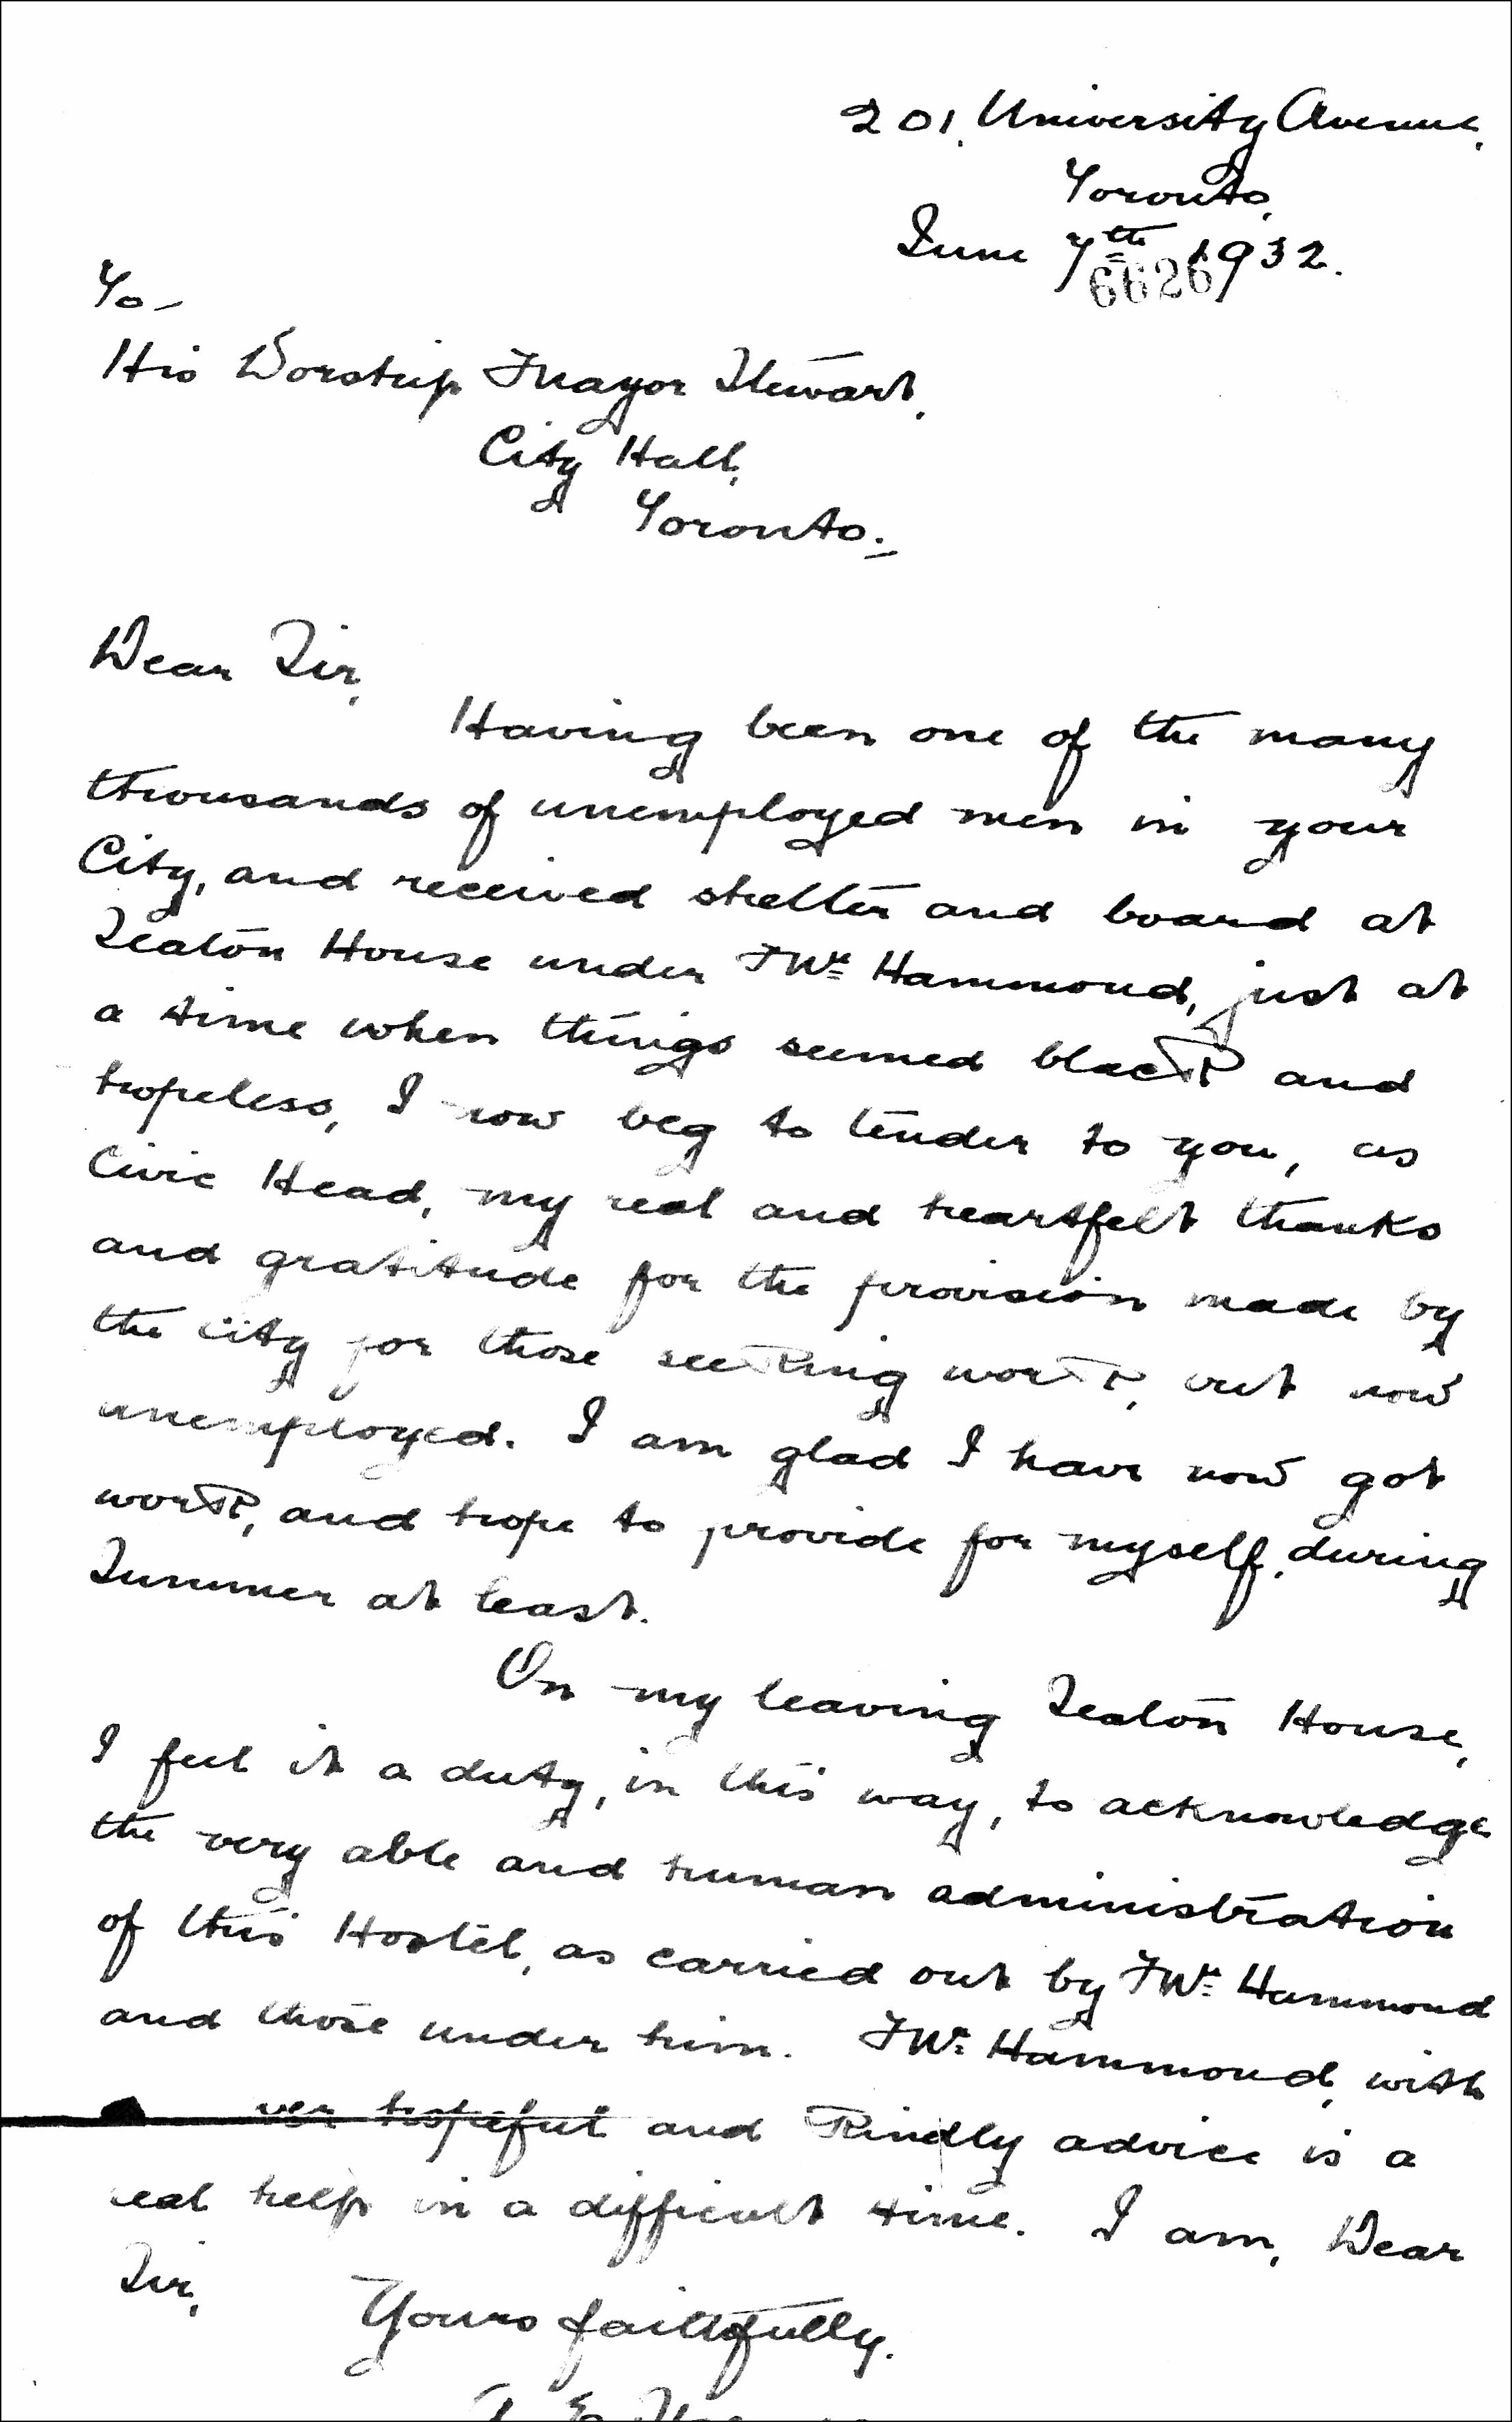 201, University Avenue,
Toronto,
June 7th 1932.
6626
To-
His Worship Mayor Stewart,
City Hall,
Toronto:-
Dear Sir,
Having been one of the many
thousands of unemployed men in your
City, and received shelter and board at
Seaton House under Mr Hammond, just at
a time when things seemed black and
hopeless, I now beg to tender to you, as
Civic Head, my real and heartfelt thanks
and gratitude for the provision made by
the city for those seeking work, but now
unemployed. I am glad I have now got
work, and hope to provide for myself, during
Summer at least.
On my leaving Seaton House,
I feel it a duty, in this way, to acknowledge
the very able and human administration
of this Hostel, as carried out by Mr Hammond
and those under him. Mr Hammond, with
ver hopeful and kindly advice is a
eal help in a difficult time. I am, Dear
Sir,
Yours faithfully.